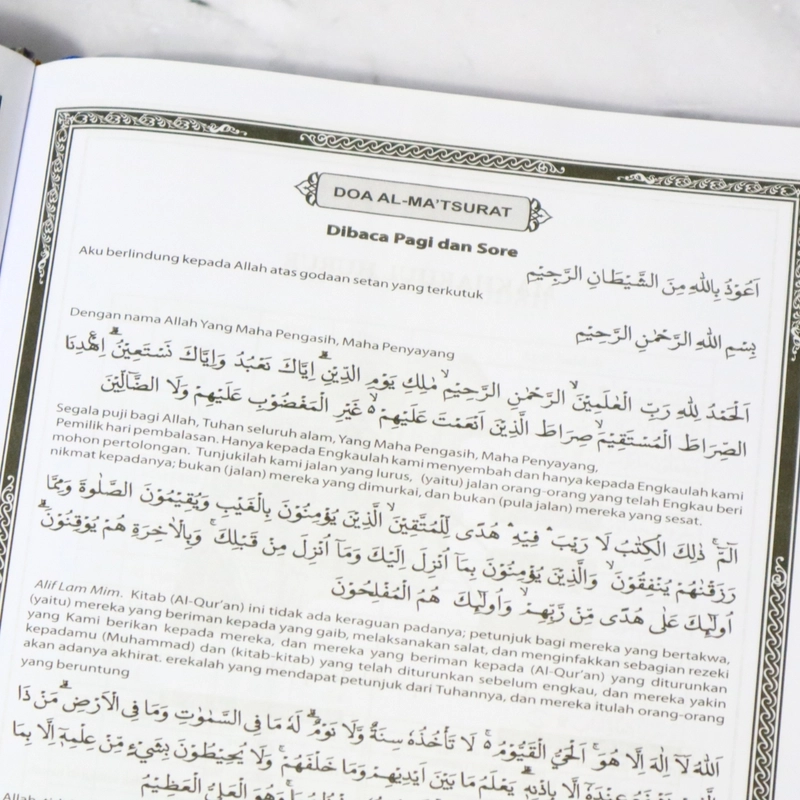 DOA AL-MA'TSURAT
Dibaca Pagi dan Sore
اَعُوْذُ بِاللّٰهِ مِنَ الشَّيْطَانِ الرَّجِيْمِ
Aku berlindung kepada Allah atas godaan setan yang terkutuk
بِسْمِ اللّٰهِ الرَّحْمٰنِ الرَّحِيْمِ
Dengan nama Allah Yang Maha Pengasih, Maha Penyayang
اَلْحَمْدُ لِلّٰهِ رَبِّ الْعٰلَمِيْنَۙ الرَّحْمٰنِ الرَّحِيْمِۙ مٰلِكِ يَوْمِ الدِّيْنِۗ اِيَّاكَ نَعْبُدُ وَاِيَّاكَ نَسْتَعِيْنُۗ اِهْدِنَا
الصِّرَاطَ الْمُسْتَقِيْمَۙ صِرَاطَ الَّذِيْنَ اَنْعَمْتَ عَلَيْهِمْ ەۙ غَيْرِ الْمَغْضُوْبِ عَلَيْهِمْ وَلَا الضَّاۤلِّيْنَ
Segala puji bagi Allah, Tuhan seluruh alam, Yang Maha Pengasih, Maha Penyayang,
Pemilik hari pembalasan. Hanya kepada Engkaulah kami menyembah dan hanya kepada Engkaulah kami
mohon pertolongan. Tunjukilah kami jalan yang lurus, (yaitu) jalan orang-orang yang telah Engkau beri
nikmat kepadanya; bukan (jalan) mereka yang dimurkai, dan bukan (pula jalan) mereka yang sesat.
الۤمّۤۚ ذٰلِكَ الْكِتٰبُ لَا رَيْبَۛ فِيْهِۛ هُدًى لِّلْمُتَّقِيْنَۙ الَّذِيْنَ يُؤْمِنُوْنَ بِالْغَيْبِ وَيُقِيْمُوْنَ الصَّلٰوةَ وَمِمَّا
رَزَقْنٰهُمْ يُنْفِقُوْنَۙ وَالَّذِيْنَ يُؤْمِنُوْنَ بِمَآ اُنْزِلَ اِلَيْكَ وَمَآ اُنْزِلَ مِنْ قَبْلِكَۚ وَبِالْاٰخِرَةِ هُمْ يُوْقِنُوْنَۗ
اُولٰۤىِٕكَ عَلٰى هُدًى مِّنْ رَّبِّهِمْۙ وَاُولٰۤىِٕكَ هُمُ الْمُفْلِحُوْنَ
Alif Lam Mim. Kitab (Al-Qur'an) ini tidak ada keraguan padanya; petunjuk bagi mereka yang bertakwa,
(yaitu) mereka yang beriman kepada yang gaib, melaksanakan salat, dan menginfakkan sebagian rezeki
yang Kami berikan kepada mereka, dan mereka yang beriman kepada (Al-Qur'an) yang diturunkan
kepadamu (Muhammad) dan (kitab-kitab) yang telah diturunkan sebelum engkau, dan mereka yakin
akan adanya akhirat. erekalah yang mendapat petunjuk dari Tuhannya, dan mereka itulah orang-orang
yang beruntung
اَللّٰهُ لَآ اِلٰهَ اِلَّا هُوَۚ اَلْحَيُّ الْقَيُّوْمُ ەۚ لَا تَأْخُذُهٗ سِنَةٌ وَّلَا نَوْمٌۗ لَهٗ مَا فِى السَّمٰوٰتِ وَمَا فِى الْاَرْضِۗ مَنْ ذَا
الَّذِيْ يَشْفَعُ عِنْدَهٗٓ اِلَّا بِاِذْنِهٖۗ يَعْلَمُ مَا بَيْنَ اَيْدِيْهِمْ وَمَا خَلْفَهُمْۚ وَلَا يُحِيْطُوْنَ بِشَيْءٍ مِّنْ عِلْمِهٖٓ اِلَّا بِمَا
وَهُوَ الْعَلِيُّ الْعَظِيْمُ